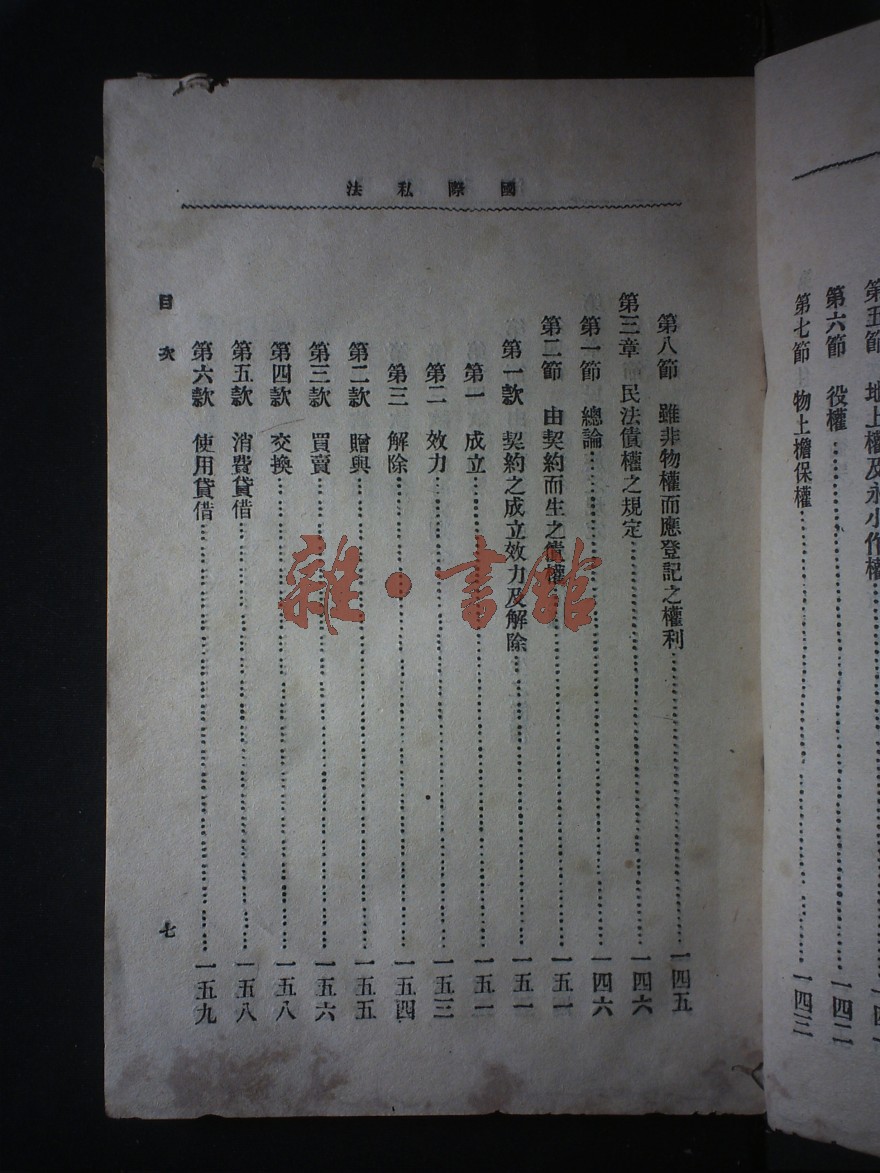 第五節　地上權及永小作權
第六節　役權……一四二
第七節　物上擔保權……一四三
國際私法
第八節　雖非物權而應登記之權利……一四五
第三章　民法債權之規定……一四六
第一節　總論……一四六
第二節　由契約而生之債權……一五一
第一款　契約之成立效力及解除……一五一
第一　成立……一五一
第二　效力……一五三
第三　解除……一五四
第二款　贈與……一五五
第三款　買賣……一五六
第四款　交換……一五八
第五款　消費貸借……一五八
第六款　使用貸借……一五九
目次
七
雜·書館